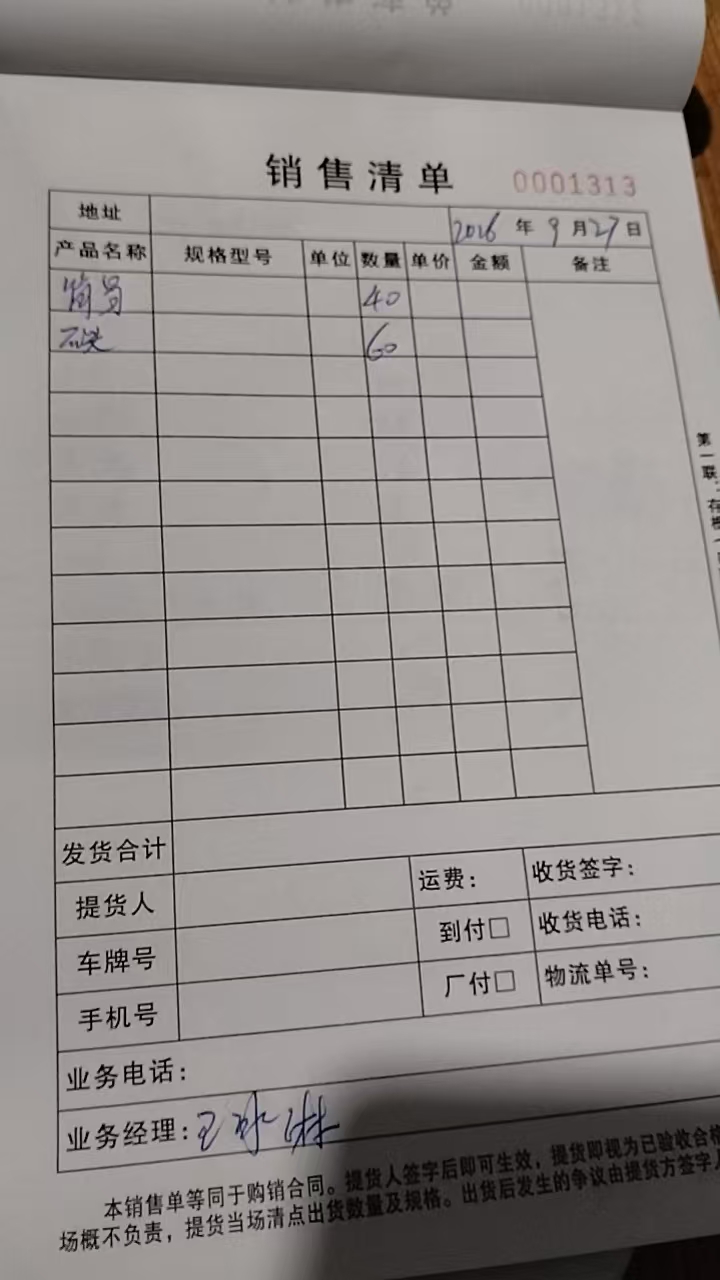 销售清单 0001313
地址 2026 年 9 月 27 日
产品名称 规格型号 单位 数量 单价 金额 备注
40
60
发货合计
提货人 运费： 收货签字：
车牌号 到付□ 收货电话：
手机号 厂付□ 物流单号：
业务电话：
业务经理：王
本销售单等同于购销合同。提货人签字后即可生效，提货即视为已验收合格
场概不负责，提货当场清点出货数量及规格。出货后发生的争议由提货方签字
第一联：存根